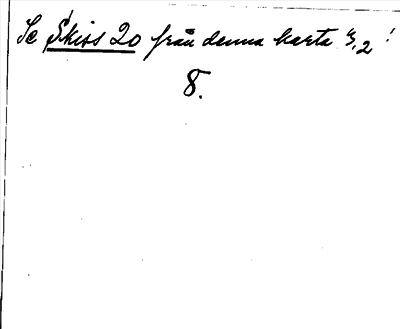 Se Skiss 20 från denna karta 4,2!
8.